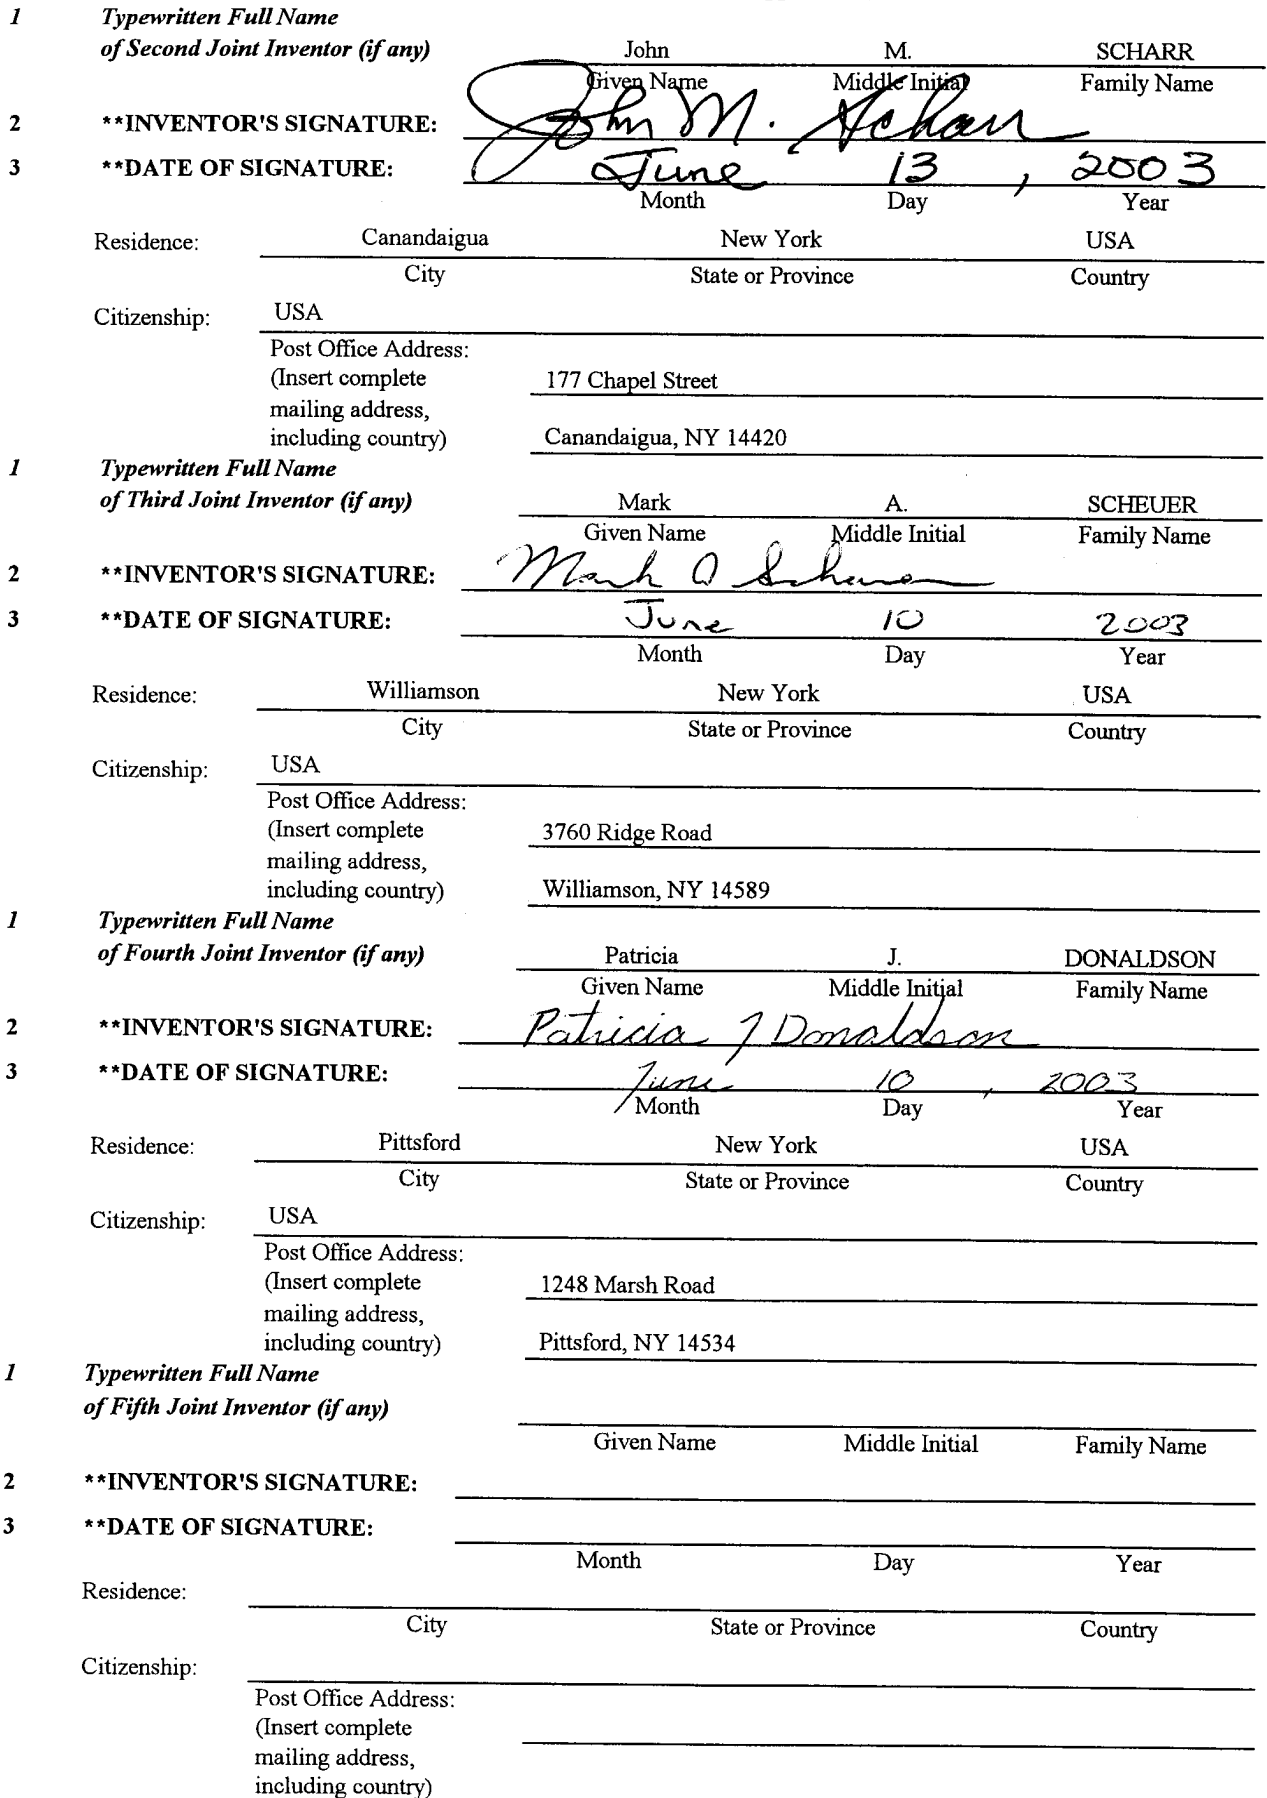 1 Typewritten Full Name
of Second Joint Inventor (if any) John M. SCHARR
Given Name Middle Initial Family Name
2 **INVENTOR'S SIGNATURE: John M. Scharr
3 **DATE OF SIGNATURE: June 13, 2003
Month Day Year
Residence: Canandaigua New York USA
City State or Province Country
Citizenship: USA
Post Office Address:
(Insert complete 177 Chapel Street
mailing address,
including country) Canandaigua, NY 14420
1 Typewritten Full Name
of Third Joint Inventor (if any) Mark A. SCHEUER
Given Name Middle Initial Family Name
2 **INVENTOR'S SIGNATURE: Mark A Scheuer
3 **DATE OF SIGNATURE: June 10 2003
Month Day Year
Residence: Williamson New York USA
City State or Province Country
Citizenship: USA
Post Office Address:
(Insert complete 3760 Ridge Road
mailing address,
including country) Williamson, NY 14589
1 Typewritten Full Name
of Fourth Joint Inventor (if any) Patricia J. DONALDSON
Given Name Middle Initial Family Name
2 **INVENTOR'S SIGNATURE: Patricia J Donaldson
3 **DATE OF SIGNATURE: June 10, 2003
Month Day Year
Residence: Pittsford New York USA
City State or Province Country
Citizenship: USA
Post Office Address:
(Insert complete 1248 Marsh Road
mailing address,
including country) Pittsford, NY 14534
1 Typewritten Full Name
of Fifth Joint Inventor (if any)
Given Name Middle Initial Family Name
2 **INVENTOR'S SIGNATURE:
3 **DATE OF SIGNATURE:
Month Day Year
Residence:
City State or Province Country
Citizenship:
Post Office Address:
(Insert complete
mailing address,
including country)